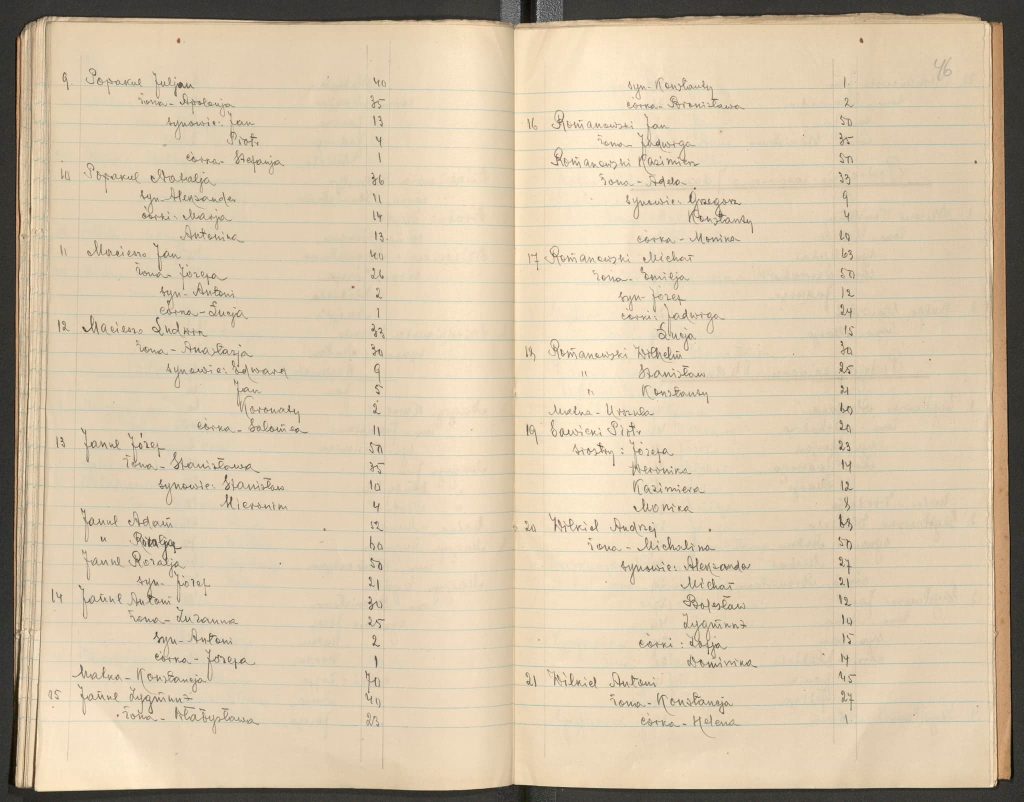 9. Popakul Juljan 40
żona - Apolonja 35
synowie: Jan 13
Piotr 4
córka - Stefanja 1
10 Popakul Natalja 36
syn - Aleksander 11
córki: Marja 14
Antonina 13
11 Macieszo Jan 40
żona - Józefa 26
syn - Antoni 2
córka - Łucja 1
12 Macieszo Ludwik 33
żona - Anastazja 30
synowie: Edward 9
Jan 5
Koronaty 2
córka - Salomea 11
13 Jannul Józef 50
żona - Stanisława 35
synowie: Stanisław 10
Hieronim 4
Jannul Adam 12
" 60
Jannul Rozalja 50
syn - Józef 21
14 Jannul Antoni 30
żona - Zuzanna 25
syn - Antoni 2
córka - Józefa 1
Matka - Konstancja 70
15 Jannul Zygmunt 40
żona - Władysława 23
46
syn - Konstanty 1
córka - Bronisława 2
16 Romanowski Jan 50
żona - Jadwiga 35
Romanowski Kazimierz 50
żona - Adela 33
synowie: Grzegorz 9
Konstanty 4
córka - Monika 10
17 Romanowski Michał 63
żona - Emilja 50
syn - Józef 12
córki: Jadwiga 24
Łucja 15
18 Romanowski Wilhelm 30
" Stanisław 25
" Konstanty 21
Matka - Urszula 60
19 Sawicki Piotr 20
siostry: Józefa 23
Weronika 14
Kazimiera 12
Monika 8
20 Witkiel Andrzej 63
żona - Michalina 50
synowie: Aleksander 27
Michał 21
Bolesław 12
Zygmunt 10
córki: Zofja 15
Dominika 14
21 Witkiel Antoni 45
żona - Konstancja 27
córka - Helena 1